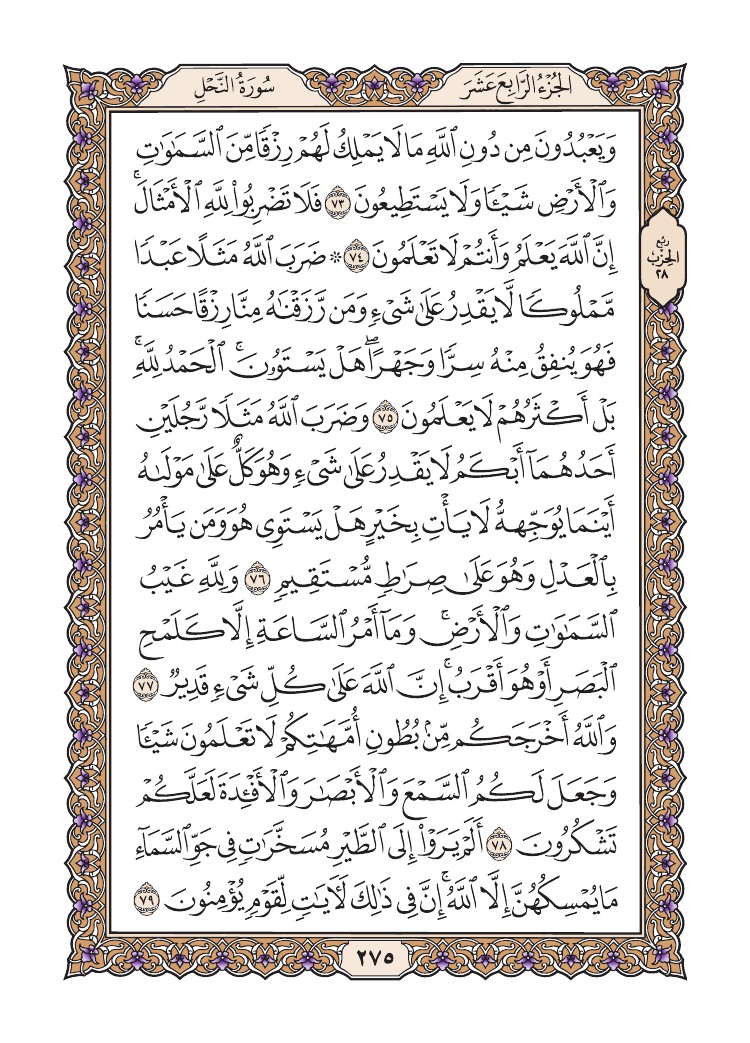 سُورَةُ النَّحۡلِ
الجُزۡءُ الرَّابِعَ عَشَرَ
وَيَعۡبُدُونَ مِن دُونِ ٱللَّهِ مَا لَا يَمۡلِكُ لَهُمۡ رِزۡقٗا مِّنَ ٱلسَّمَٰوَٰتِ
وَٱلۡأَرۡضِ شَيۡـٔٗا وَلَا يَسۡتَطِيعُونَ ٧٣ فَلَا تَضۡرِبُواْ لِلَّهِ ٱلۡأَمۡثَالَۚ
إِنَّ ٱللَّهَ يَعۡلَمُ وَأَنتُمۡ لَا تَعۡلَمُونَ ٧٤ ۞ ضَرَبَ ٱللَّهُ مَثَلًا عَبۡدٗا
مَّمۡلُوكٗا لَّا يَقۡدِرُ عَلَىٰ شَيۡءٖ وَمَن رَّزَقۡنَٰهُ مِنَّا رِزۡقًا حَسَنٗا
فَهُوَ يُنفِقُ مِنۡهُ سِرّٗا وَجَهۡرًاۖ هَلۡ يَسۡتَوُۥنَۚ ٱلۡحَمۡدُ لِلَّهِۚ
بَلۡ أَكۡثَرُهُمۡ لَا يَعۡلَمُونَ ٧٥ وَضَرَبَ ٱللَّهُ مَثَلٗا رَّجُلَيۡنِ
أَحَدُهُمَآ أَبۡكَمُ لَا يَقۡدِرُ عَلَىٰ شَيۡءٖ وَهُوَ كَلٌّ عَلَىٰ مَوۡلَىٰهُ
أَيۡنَمَا يُوَجِّههُّ لَا يَأۡتِ بِخَيۡرٍ هَلۡ يَسۡتَوِي هُوَ وَمَن يَأۡمُرُ
بِٱلۡعَدۡلِ وَهُوَ عَلَىٰ صِرَٰطٖ مُّسۡتَقِيمٖ ٧٦ وَلِلَّهِ غَيۡبُ
ٱلسَّمَٰوَٰتِ وَٱلۡأَرۡضِۚ وَمَآ أَمۡرُ ٱلسَّاعَةِ إِلَّا كَلَمۡحِ
ٱلۡبَصَرِ أَوۡ هُوَ أَقۡرَبُۚ إِنَّ ٱللَّهَ عَلَىٰ كُلِّ شَيۡءٖ قَدِيرٞ ٧٧
وَٱللَّهُ أَخۡرَجَكُم مِّنۢ بُطُونِ أُمَّهَٰتِكُمۡ لَا تَعۡلَمُونَ شَيۡـٔٗا
وَجَعَلَ لَكُمُ ٱلسَّمۡعَ وَٱلۡأَبۡصَٰرَ وَٱلۡأَفۡـِٔدَةَ لَعَلَّكُمۡ
تَشۡكُرُونَ ٧٨ أَلَمۡ يَرَوۡاْ إِلَى ٱلطَّيۡرِ مُسَخَّرَٰتٖ فِي جَوِّ ٱلسَّمَآءِ
مَا يُمۡسِكُهُنَّ إِلَّا ٱللَّهُۚ إِنَّ فِي ذَٰلِكَ لَأٓيَٰتٖ لِّقَوۡمٖ يُؤۡمِنُونَ ٧٩
رُبع
الحِزۡب
٢٨
٢٧٥